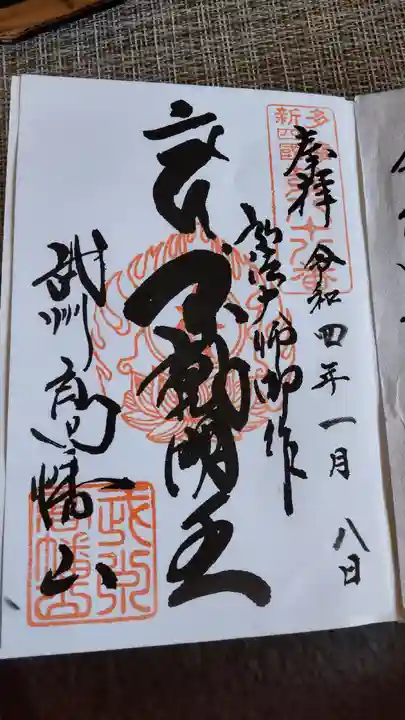 多摩
新四國
奉拝 令和四年一月八日
弘法大師御作
不動明王
武州 高幡山
武州
高幡山